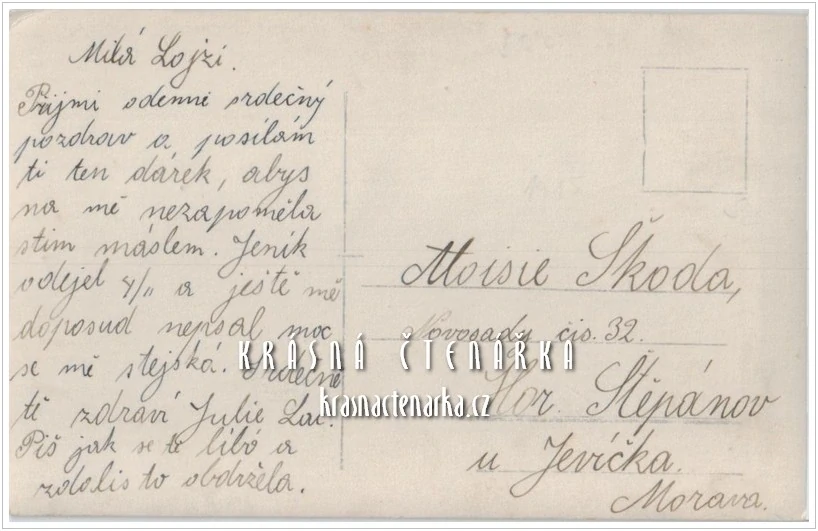 Milá Lojzi.
Přijmi odemně srdečný
pozdrav a posílám
ti ten dárek, abys
na mě nezapoměla
stim máslem. Jeník
odejel 4/11 a ještě mě
doposud nepsal moc
se mě stejská. Srdečně
tě zdraví Julie Lac.
Piš jak se ti líbí a
zdalis to obdržela.
Aloisie Škoda,
Novosady čis. 32.
Hor. Štěpánov
u Jevíčka.
Morava.
KRÁSNÁ ČTENÁŘKA
krasnactenarka.cz